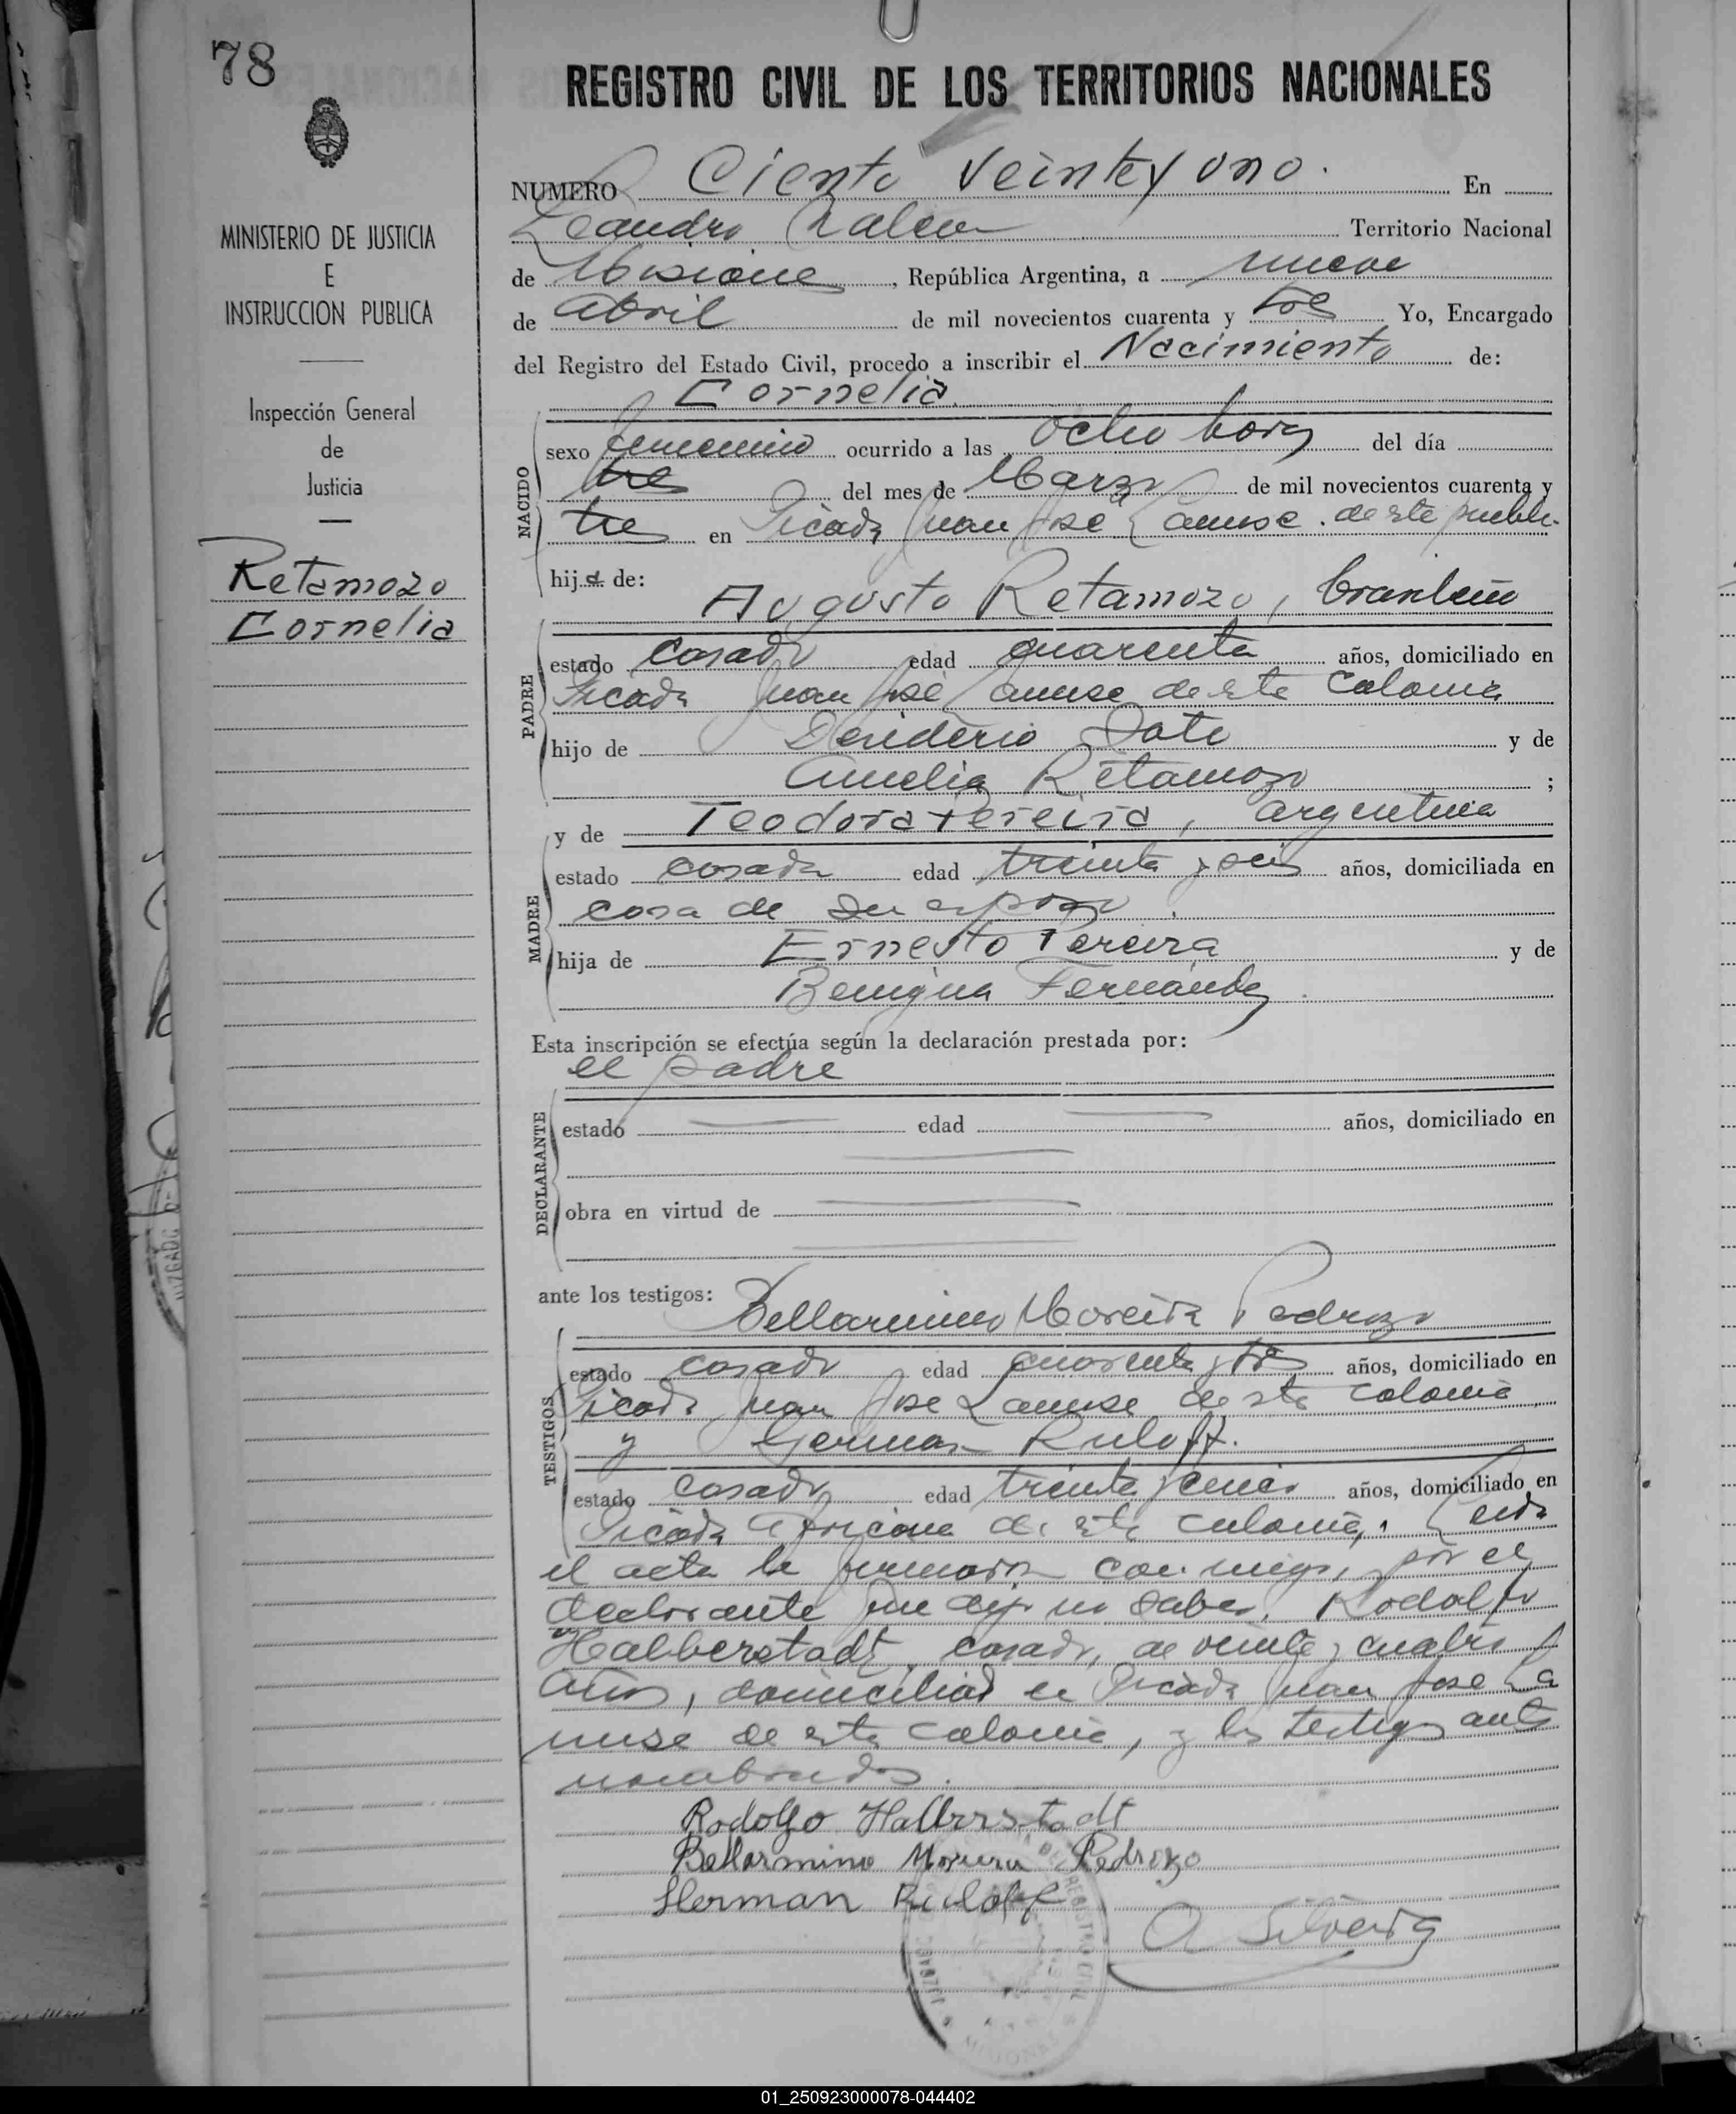 78
REGISTRO CIVIL DE LOS TERRITORIOS NACIONALES
MINISTERIO DE JUSTICIA
E
INSTRUCCION PUBLICA
Inspección General
de
Justicia
Retamozo
Cornelia
NUMERO Ciento Veinteyuno. En
Leandro Territorio Nacional
de Misiones, República Argentina, a nueve
de abril de mil novecientos cuarenta y tres Yo, Encargado
del Registro del Estado Civil, procedo a inscribir el Nacimiento de:
Cornelia.
NACIDO
sexo femenino ocurrido a las ocho horas del día
tres del mes de Marzo de mil novecientos cuarenta y
tres en Picada Juan José Lanuse. de este pueblo.
hija de:
Augusto Retamozo, brasileño
PADRE
estado casado edad cuarenta años, domiciliado en
Picada Juan José Lanuse de esta Colonia
hijo de Desiderio y de
Amelia Retamozo ;
y de Teodora Pereira, argentina
MADRE
estado casada edad treinta y seis años, domiciliada en
casa de su esposo.
hija de Ernesto Pereira y de
Benigna Fernández.
Esta inscripción se efectúa según la declaración prestada por:
el padre
DECLARANTE
estado edad años, domiciliado en
obra en virtud de
ante los testigos: Bellarmino Moreira Pedrozo
TESTIGOS
estado casado edad cuarenta y tres años, domiciliado en
Picada Juan Jose Lanuse de esta colonia
y German Ruloff.
estado casado edad treinta y cinco años, domiciliado en
Picada de esta colonia,. Leida
el acta la firmaron con migo, por el
declarante que dijo no saber, Rodolfo
Halberstadt, casado, de veinte y cuatro
años, domiciliado en Picada Juan Jose La
nuse de esta colonia, y los testigos ante
nombrados.
Rodolfo Halberstadt
Bellarmino Moreira Pedrozo
Herman Ruloff
A Silveira
01_250923000078-044402